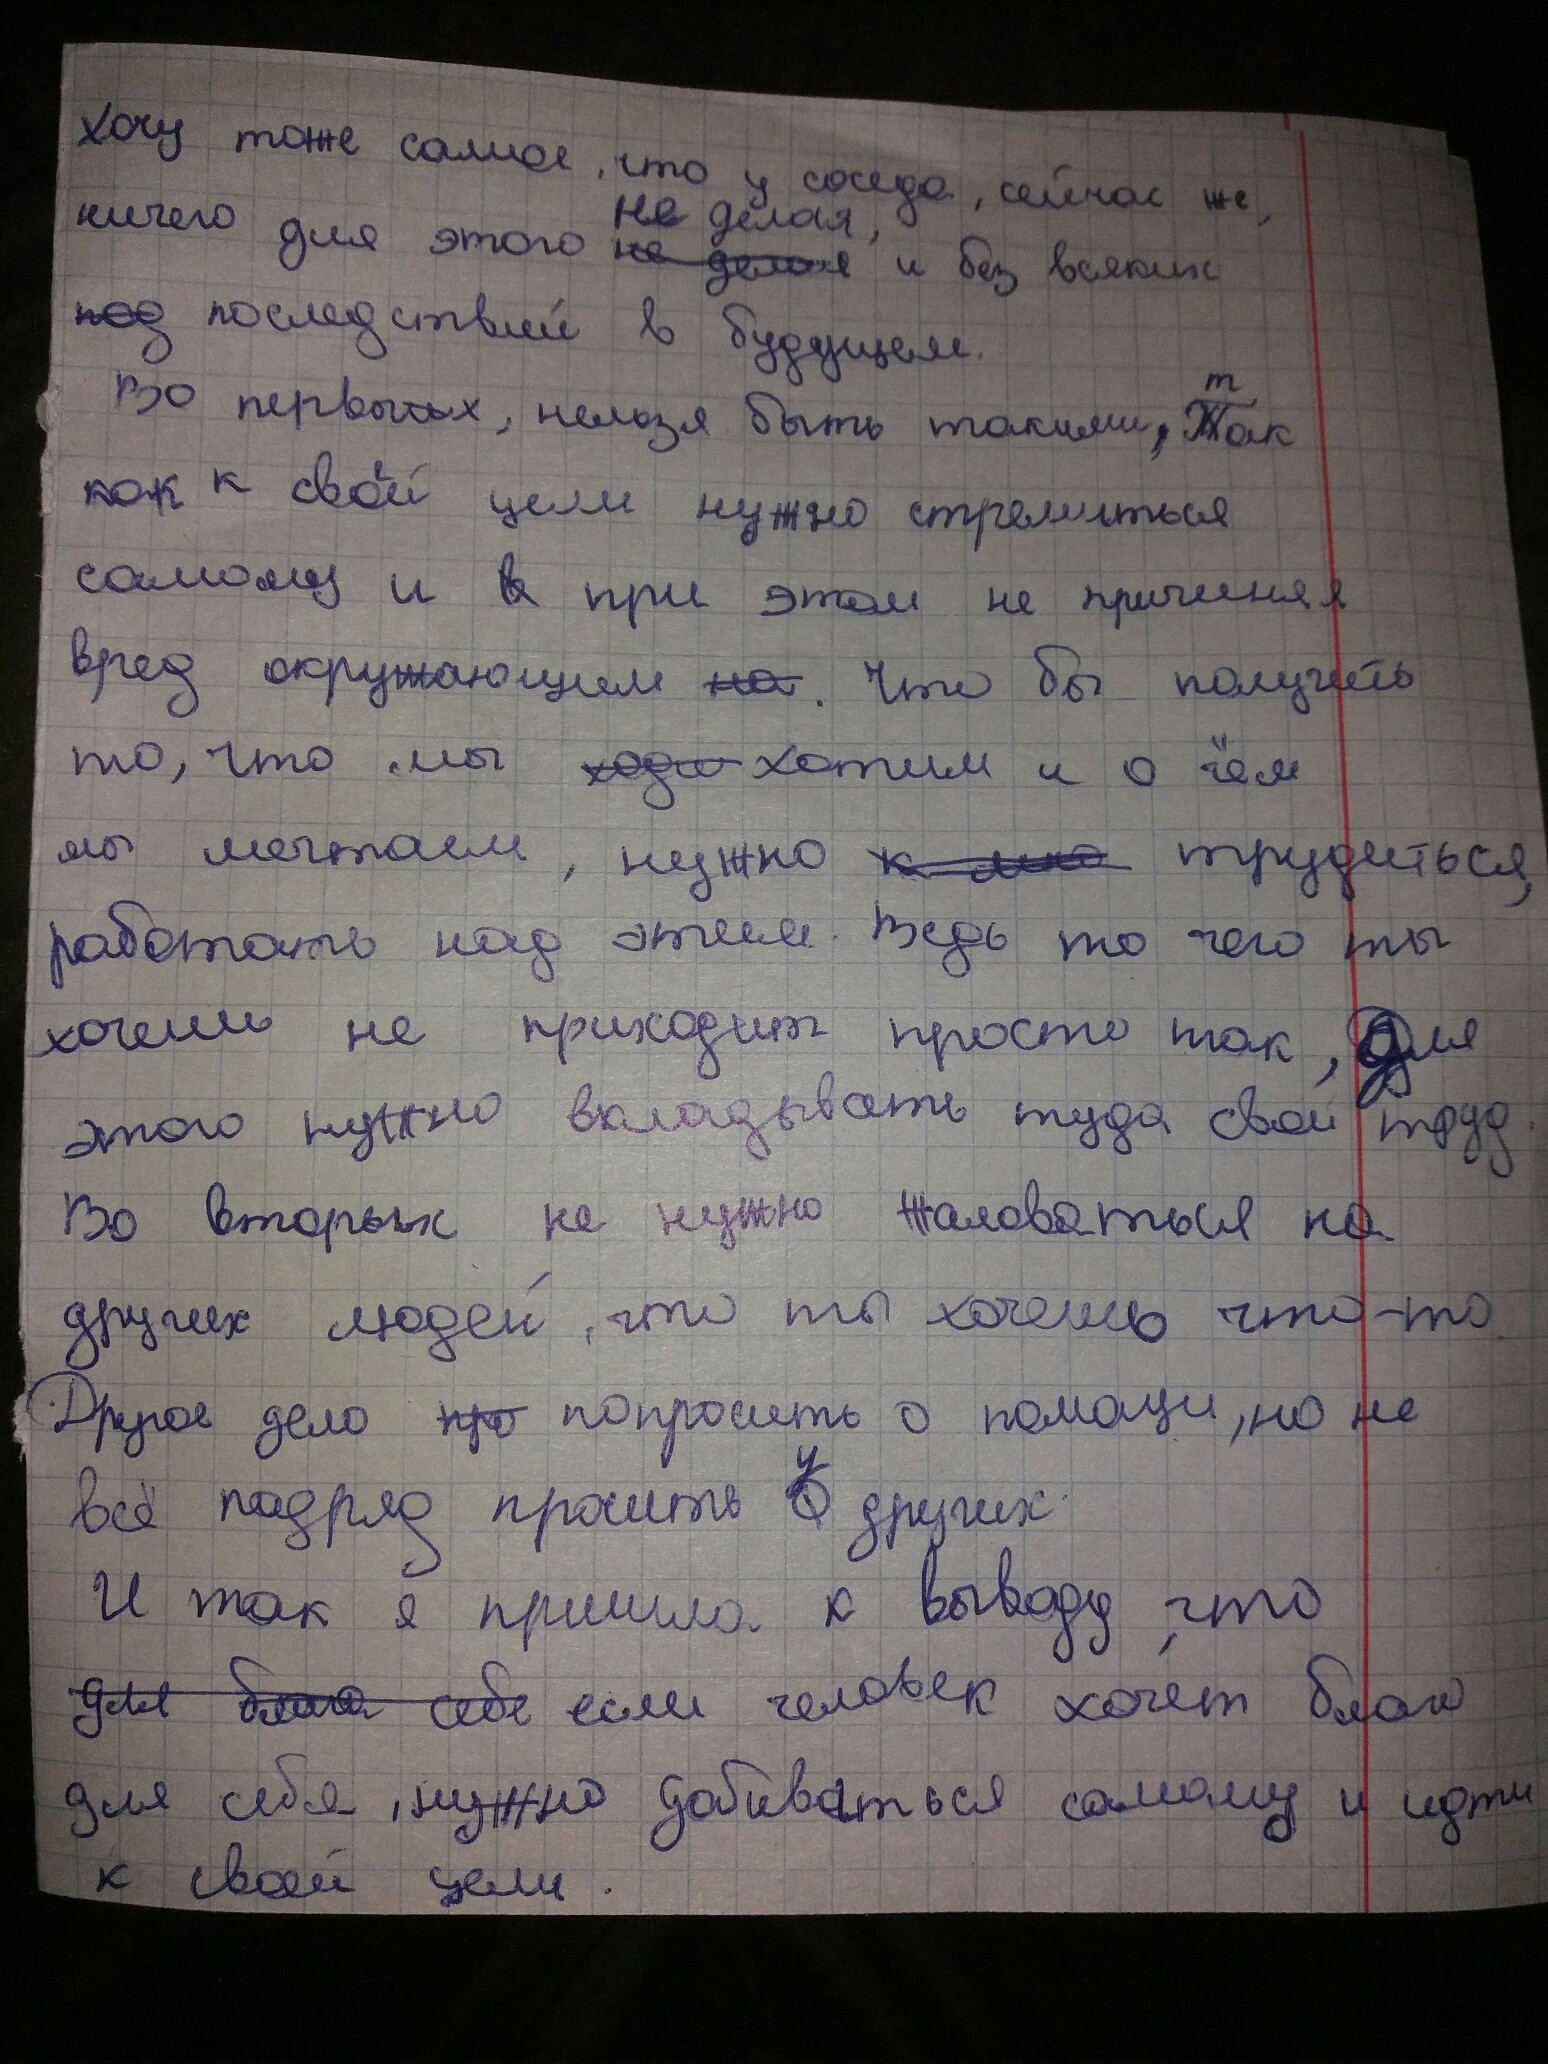 Хочу тоже самое, что у соседа, сейчас же,
ничего для этого не делая, и без всяких
последствий в будущем.
Во первых, нельзя быть такими, так
как к своей цели нужно стремиться
самому и при этом не причиняя
вред окружающим. Что бы получить
то, что мы хотим и о чём
мы мечтаем, нужно трудиться,
работать над этим. Ведь то чего ты
хочешь не приходит просто так, для
этого нужно вкладывать туда свой труд.
Во вторых не нужно жаловаться на
других людей, что ты хочешь что-то
Другое дело попросить о помощи, но не
всё подряд просить у других.
И так я пришла к выводу, что
если человек хочет благо
для себя, нужно добиваться самому и идти
к своей цели.